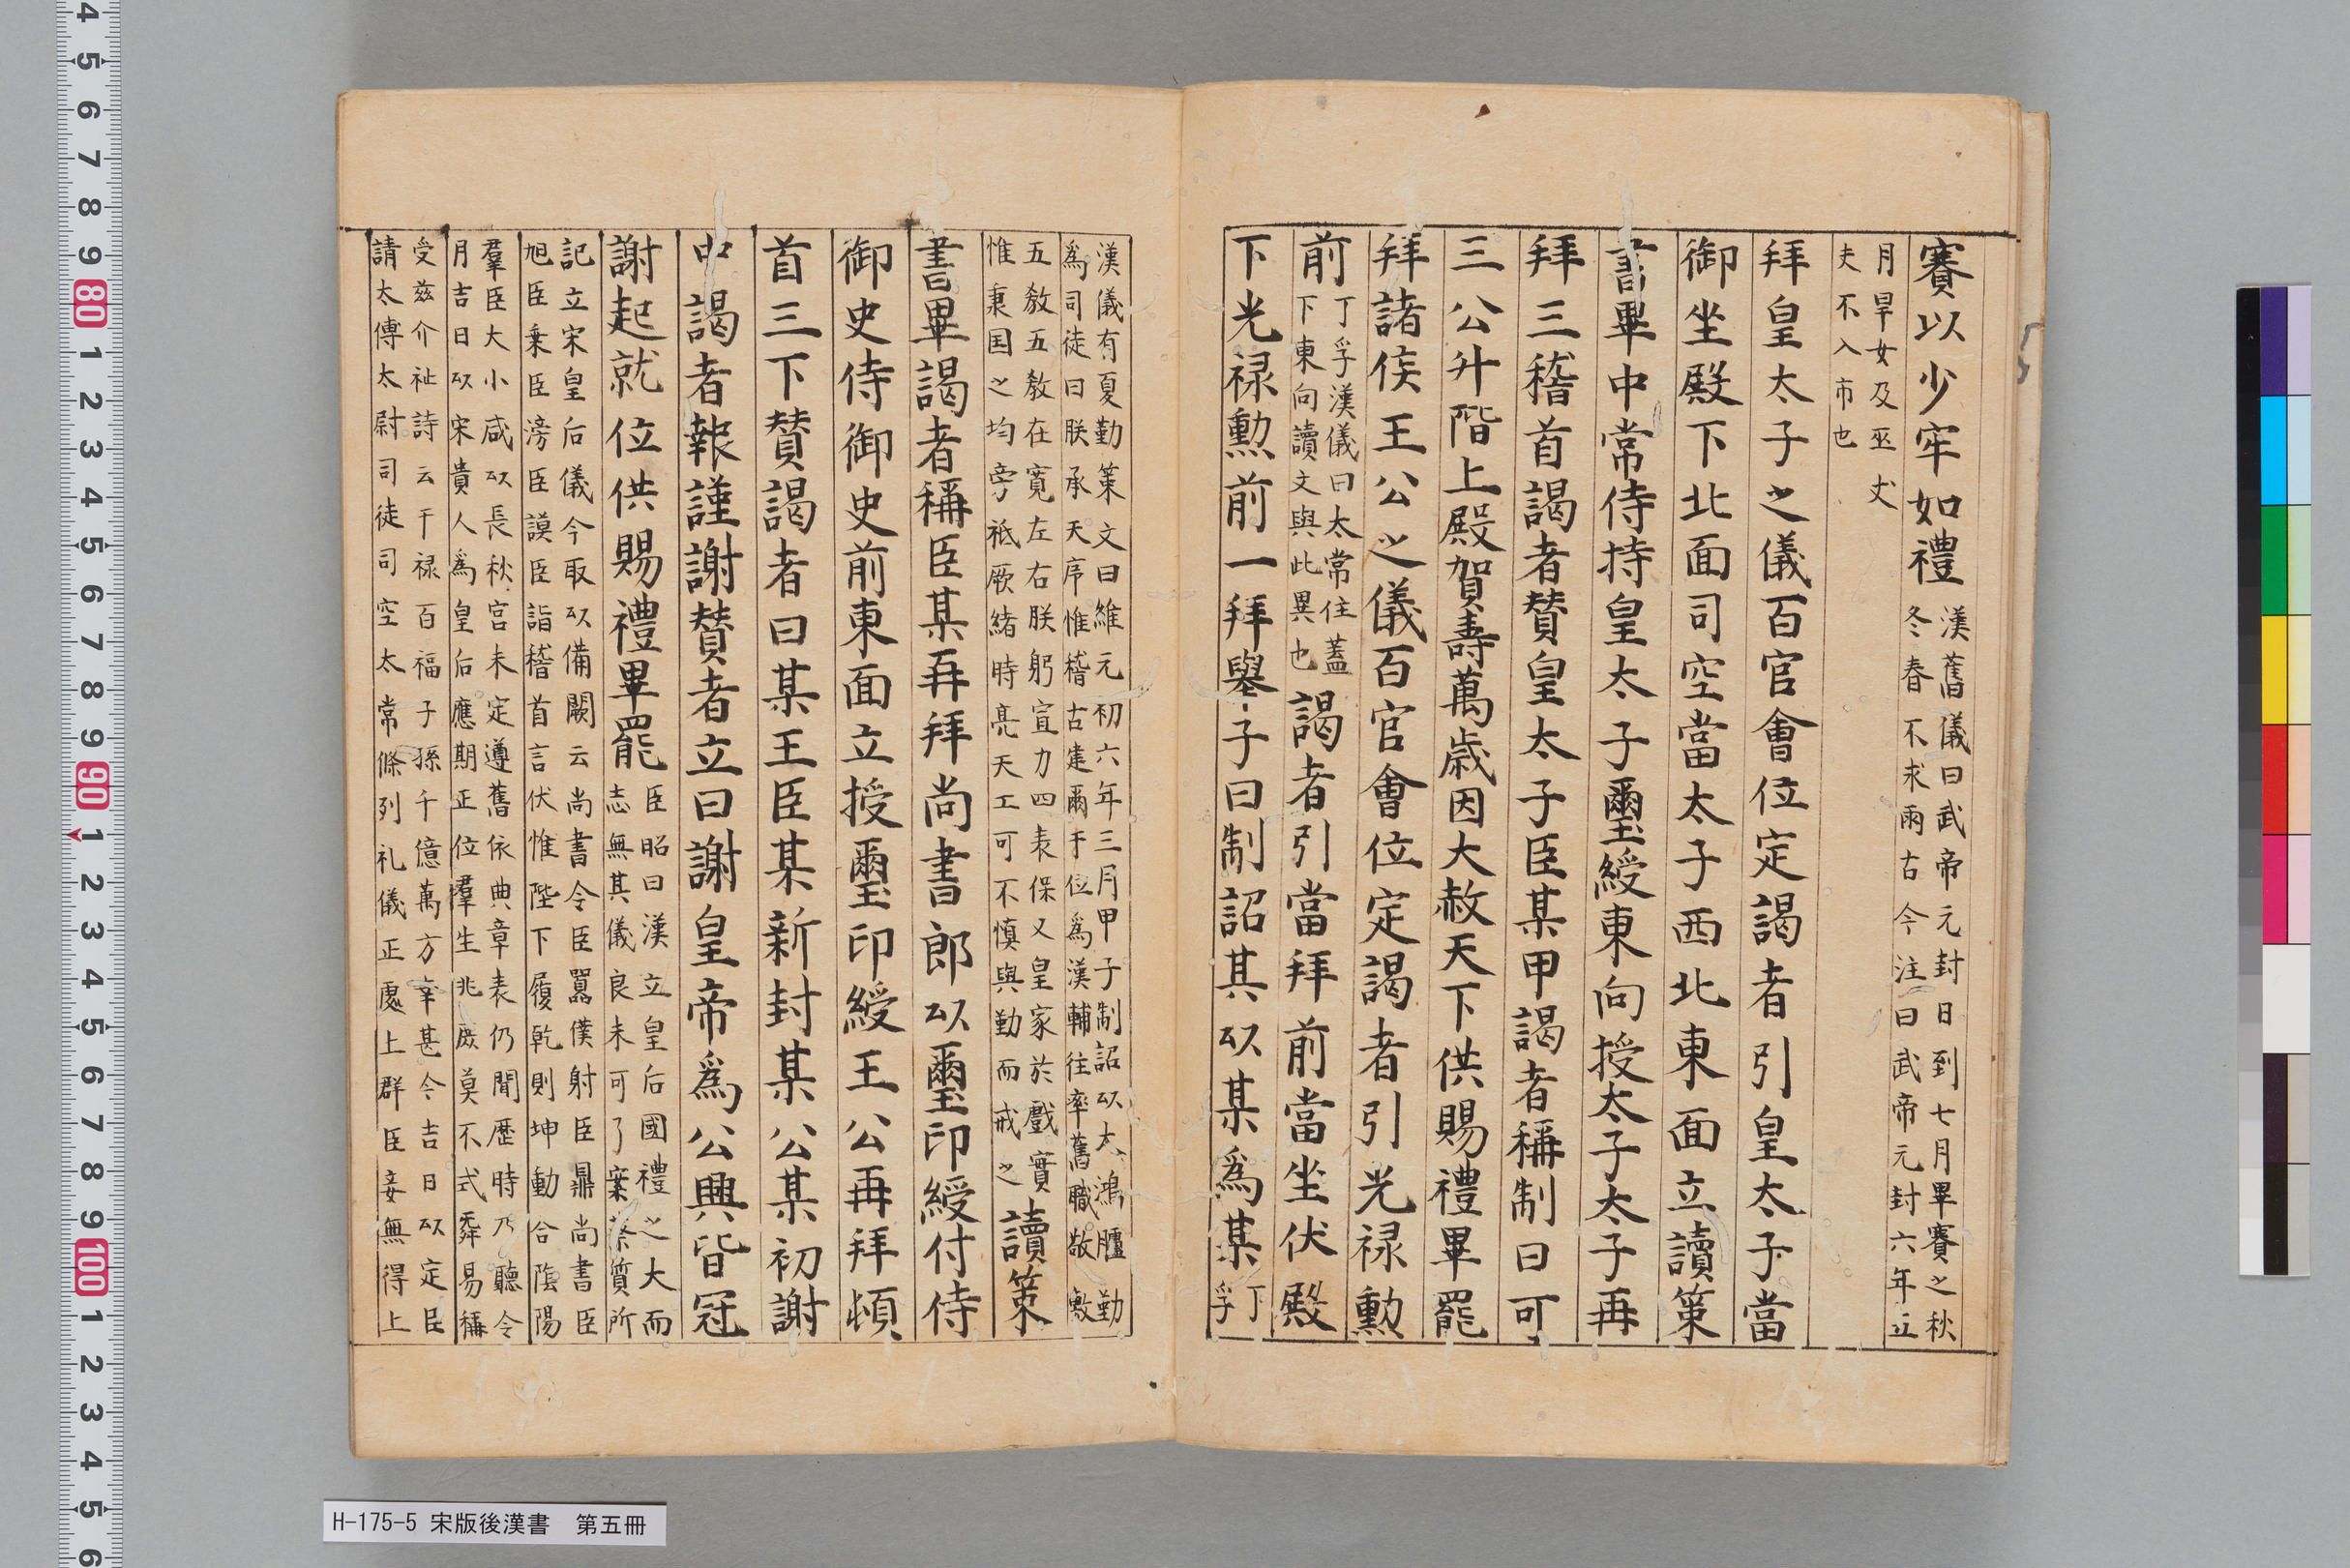 賽以少牢如禮
漢舊儀曰武帝元封日到七月畢賽之秋
冬春不求雨古今注曰武帝元封六年五
月旱女及巫丈
夫不入市也
拜皇太子之儀百官會位定謁者引皇太子當
御坐殿下北面司空當太子西北東面立讀策
書畢中常侍持皇太子璽綬東向授太子太子再
拜三稽首謁者賛皇太子臣某甲謁者稱制曰可
三公升階上殿賀壽萬歳因大赦天下供賜禮畢罷
拜諸侯王公之儀百官會位定謁者引光禄勲
前
丁孚漢儀曰太常住蓋
下東向讀文與此異也
謁者引當拜前當坐伏殿
下光禄勲前一拜舉手曰制詔其以某爲某
丁
孚
漢儀有夏勤策文曰維元初六年三月甲子制詔以大鴻臚勤
爲司徒曰朕承天序惟稽古建爾于位爲漢輔往率舊職敬敷
五教五教在寛左右朕躬宣力四表保乂皇家於戲實
惟秉国之均旁祗厥緒時亮天工可不慎與勤而戒之
讀策
書畢謁者稱臣某再拜尚書郎以璽印綬付侍
御史侍御史前東面立授璽印綬王公再拜頓
首三下賛謁者曰某王臣某新封某公某初謝
中謁者報謹謝賛者立曰謝皇帝爲公興皆冠
謝起就位供賜禮畢罷
臣昭曰漢立皇后國禮之大而
志無其儀良未可了案蔡質所
記立宋皇后儀今取以備闕云尚書令臣嚚僕射臣鼎尚書臣
旭臣乗臣滂臣謨臣詣稽首言伏惟陛下履乾則坤動合陰陽
羣臣大小咸以長秋宮未定遵舊依典章表仍聞歴時乃聽令
月吉日以宋貴人爲皇后應期正位羣生兆庶莫不式舜易稱
受兹介祉詩云干禄百福子孫千億萬方幸甚今吉日以定臣
請太傅太尉司徒司空太常條列礼儀正處上群臣妾無得上
H-175-5 宋版後漢書　第五冊